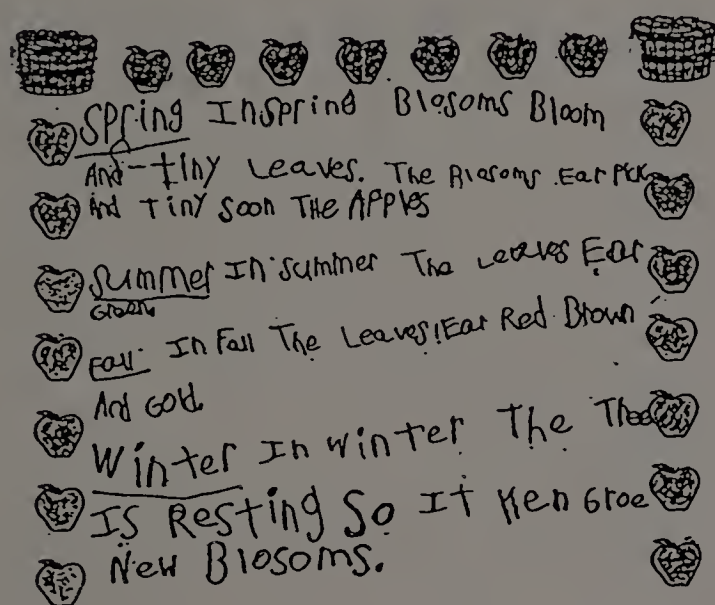 Spring InSpring Blosoms Bloom
And-tiny Leaves. The Blosoms Ear Pick
And Tiny Soon THE APPles
Summer In Summer The Leaves Ear
Green
Fall In Fall The Leaves Ear Red Brown
And Gold
Winter In Winter The Thee
Is Resting So It Ken Groe
New Blosoms.